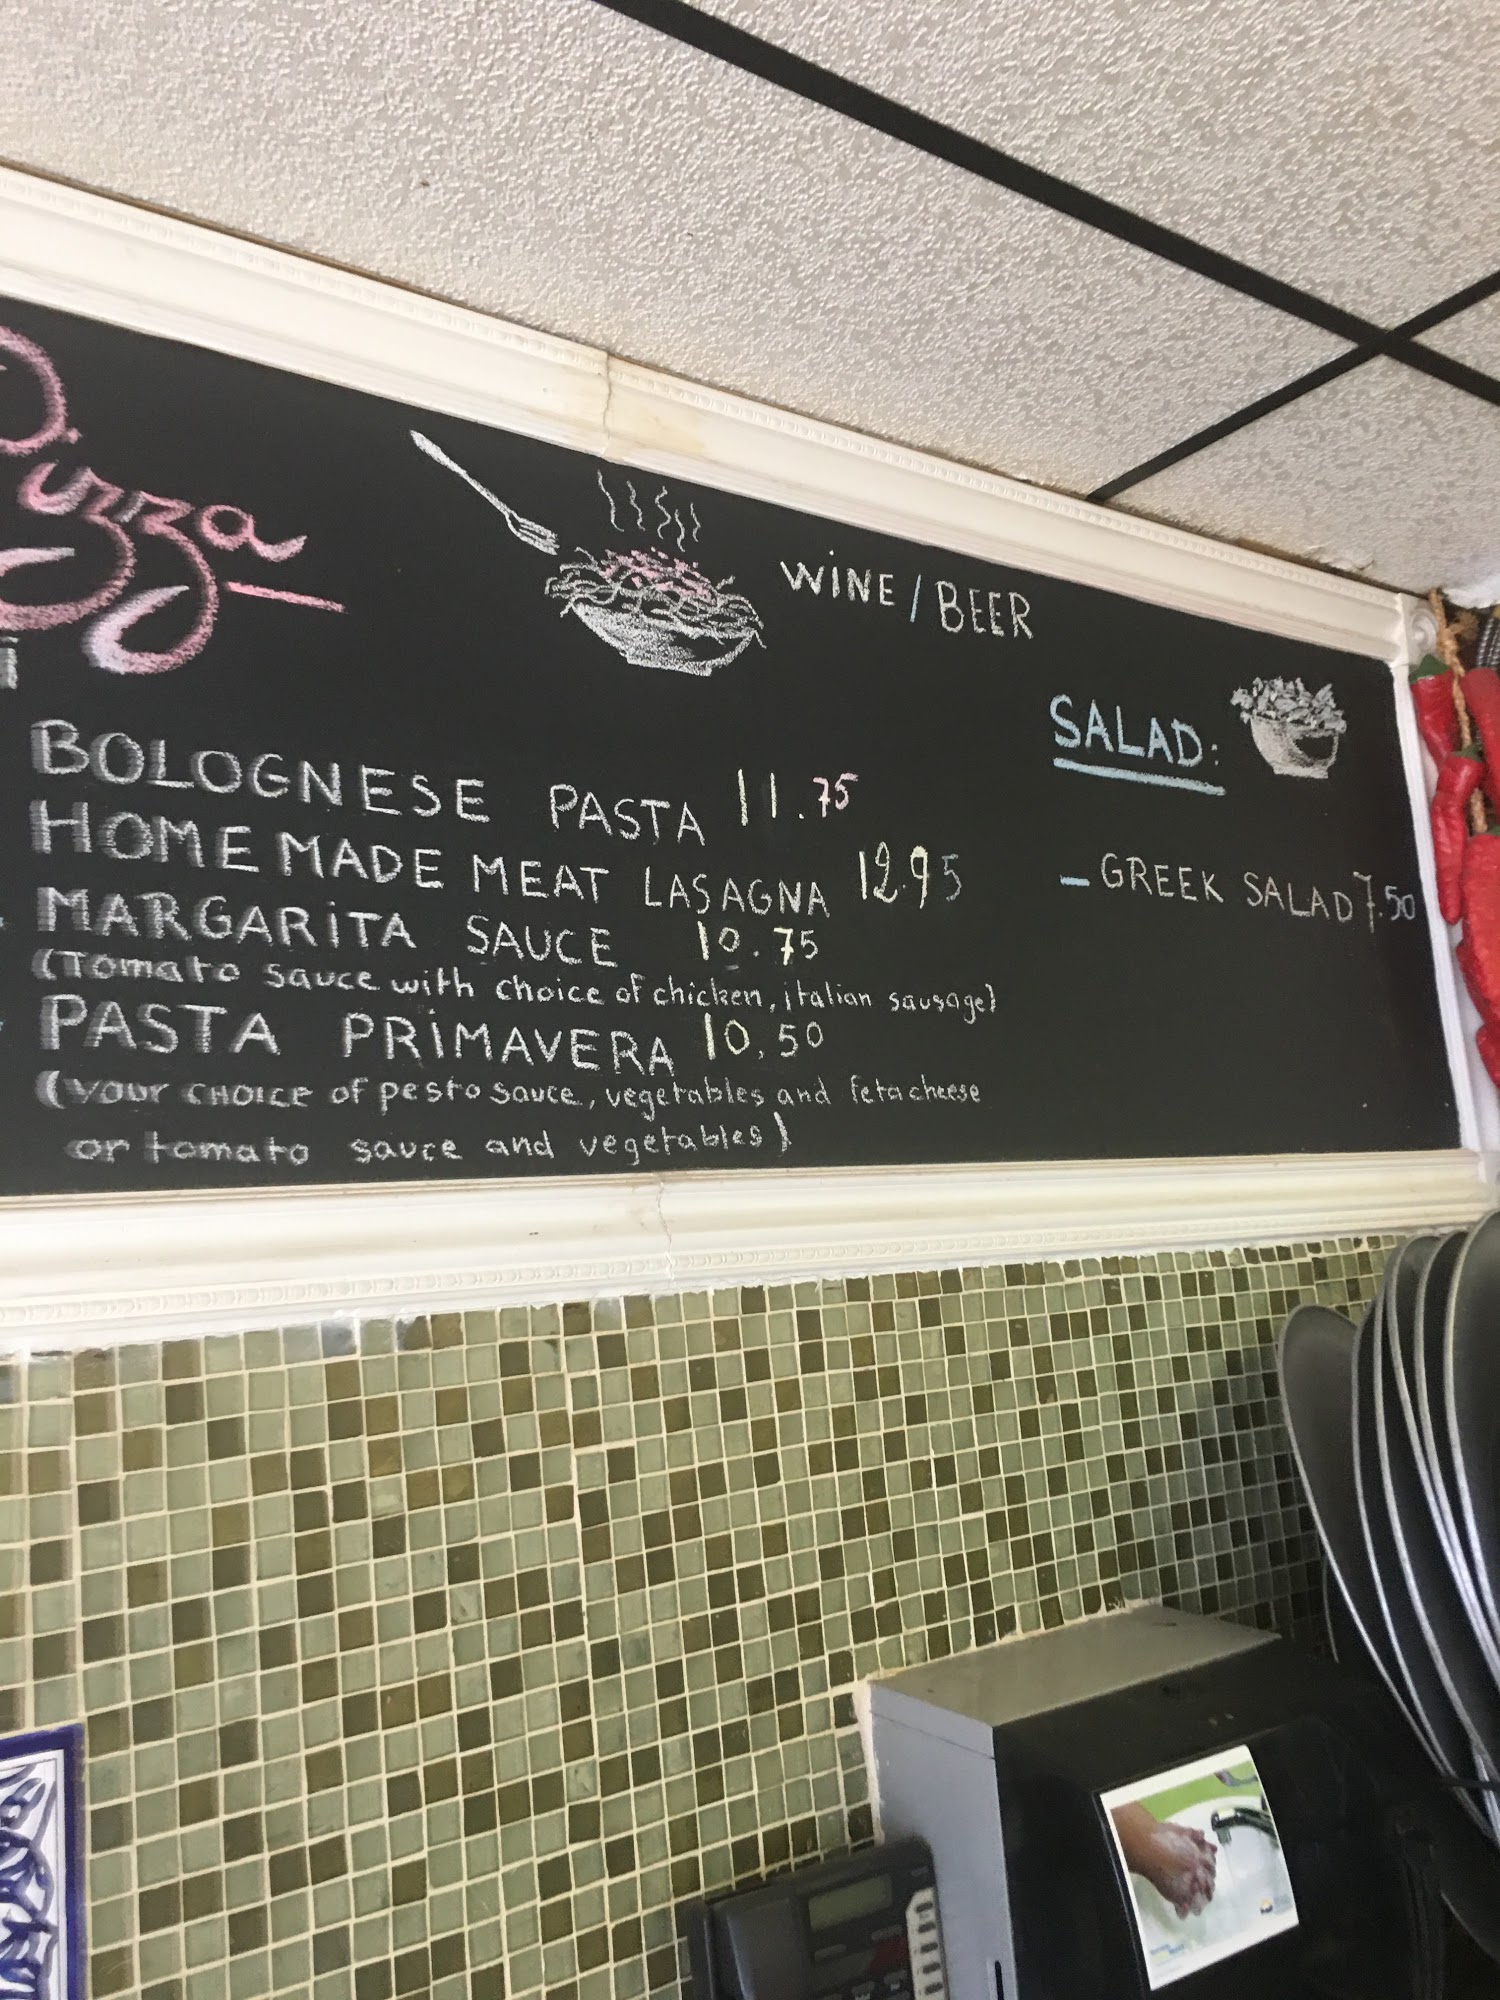 Pizza
WINE / BEER
SALAD:
BOLOGNESE PASTA 11.75
HOMEMADE MEAT LASAGNA 12.95
MARGARITA SAUCE 10.75
(Tomato sauce with choice of chicken, italian sausage)
PASTA PRIMAVERA 10.50
(YOUR CHOICE of pesto sauce, vegetables and feta cheese
or tomato sauce and vegetables)
– GREEK SALAD 7.50